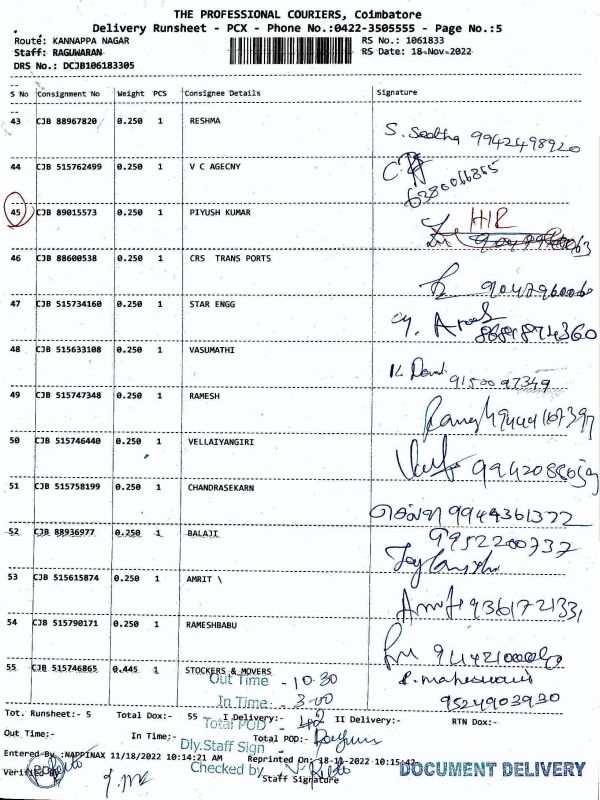 THE PROFESSIONAL COURIERS, Coimbatore
Delivery Runsheet - PCX - Phone No.:0422-3505555 - Page No.:5
Route: KANNAPPA NAGAR RS No.: 1061833
Staff: RAGUWARAN RS Date: 18-Nov-2022
DRS No.: DCJB106183305
S No Consignment No Weight PCS Consignee Details Signature
43 CJB 88967820 0.250 1 RESHMA
S. Seetha 9942498920
44 CJB 515762499 0.250 1 V C AGECNY
45 CJB 89015573 0.250 1 PIYUSH KUMAR
46 CJB 88600538 0.250 1 CRS TRANS PORTS
47 CJB 515734160 0.250 1 STAR ENGG
48 CJB 515633108 0.250 1 VASUMATHI
9150097349
49 CJB 515747348 0.250 1 RAMESH
50 CJB 515746440 0.250 1 VELLAIYANGIRI
51 CJB 515758199 0.250 1 CHANDRASEKARN
9944361372
52 CJB 88936977 0.250 1 BALAJI
9952200737
53 CJB 515615874 0.250 1 AMRIT \
54 CJB 515790171 0.250 1 RAMESHBABU
55 CJB 515746865 0.445 1 STOCKERS & MOVERS
Out Time - 10.30
In Time - 3.00
9524903930
Tot. Runsheet:- 5 Total Dox:- 55 I Delivery:- II Delivery:- RTN Dox:-
Total POD -
Out Time:- In Time:- Total POD:-
Dly.Staff Sign
Entered By :NAPPINAX 11/18/2022 10:14:21 AM Reprinted On: 18-11-2022 10:15:42
Checked by
Verified By Staff Signature
DOCUMENT DELIVERY